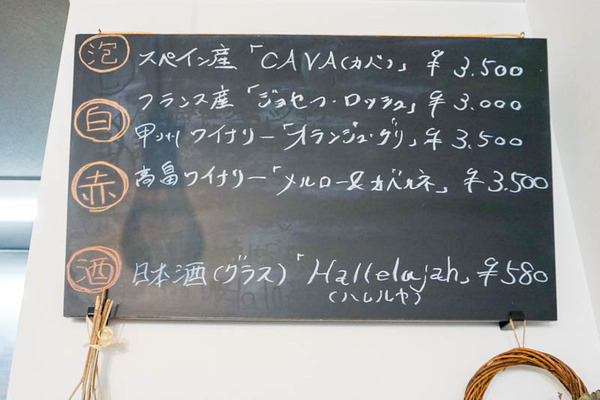 泡 スペイン産「CAVA(カバ)」¥3.500
フランス産「ジョセフ・ロッシュ」¥3.000
白 甲州ワイナリー「オランジュ・グリ」¥3.500
赤 高畠ワイナリー「メルロー&カベルネ」¥3.500
酒 日本酒(グラス)「Hallelujah」¥580
(ハレルヤ)